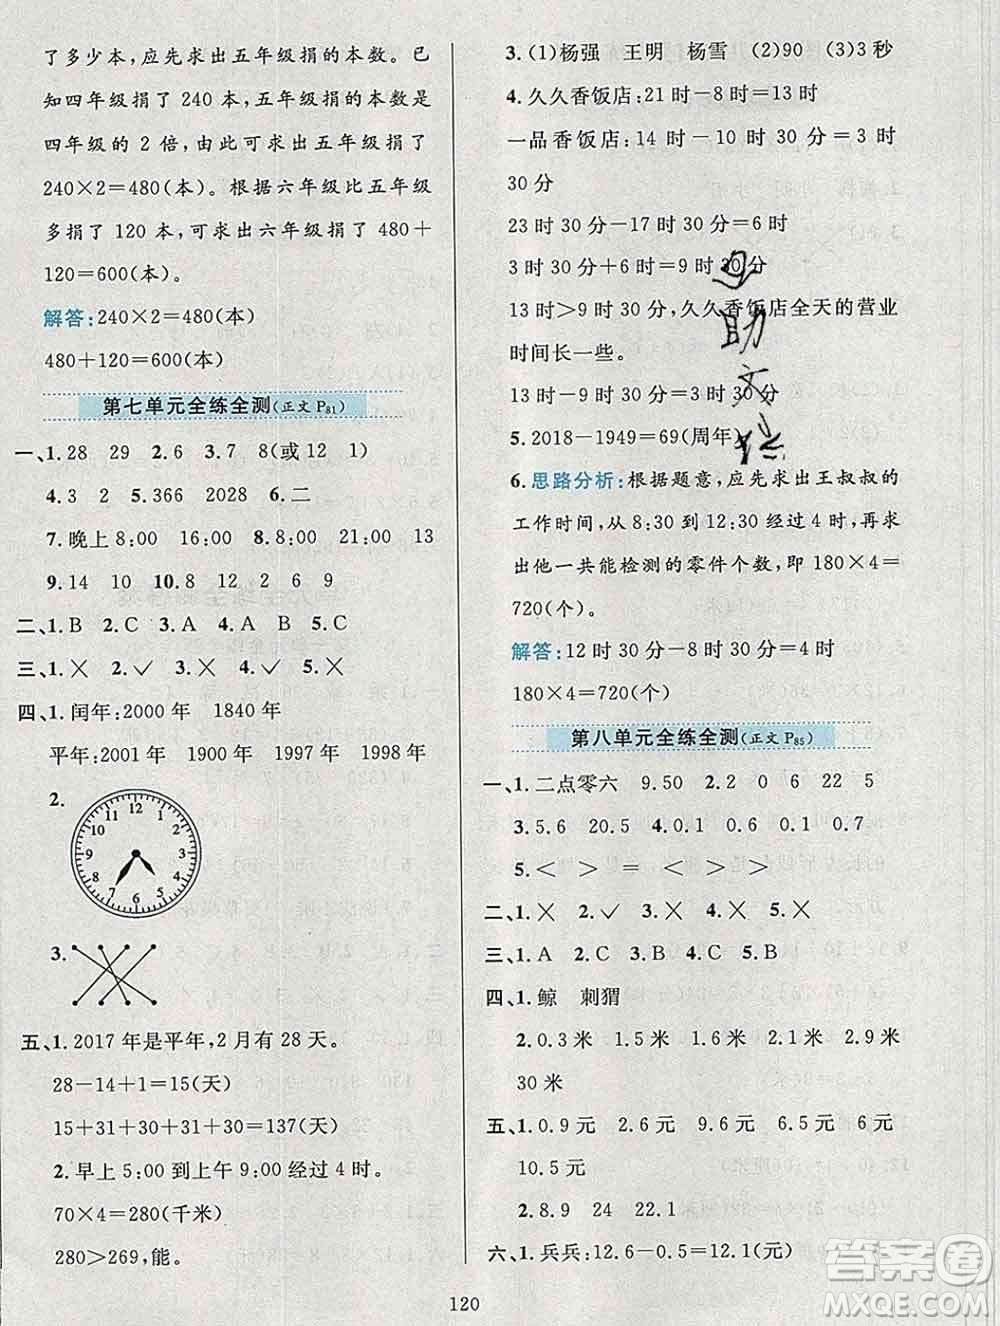 了多少本,应先求出五年级捐的本数。已
知四年级捐了 240 本,五年级捐的本数是
四年级的 2 倍,由此可求出五年级捐了
240×2=480(本)。根据六年级比五年级
多捐了 120 本,可求出六年级捐了 480+
120=600(本)。
解答:240×2=480(本)
480+120=600(本)
第七单元全练全测(正文 P81)
一、1.28 29 2.6 3.7 8(或 12 1)
4.3 2 5.366 2028 6.二
7.晚上 8:00 8.10:00 21:00 13
9.14 10 10.8 12 6 9
二、1.B 2.C 3.A 4.A 5.C
三、1.× 2.✓ 3.× 4.✓ 5.×
四、1.闰年:2000 年 1840 年
平年:2001 年 1900 年 1997 年 1998 年
2.
12 1 2 3 4 5 6 7 8 9 10 11
3.
五、1.2017 年是平年,2 月有 28 天。
28-14+1=15(天)
15+31+30+31+30=137(天)
2.早上 5:00 到上午 9:00 经过 4 时。
70×4=280(千米)
280>269,能。
3.(1)杨强 王明 杨雪 (2)90 (3)3 秒
4.久久香饭店:21 时-8 时=13 时
一品香饭店:14 时-10 时 30 分=3 时
30 分
23 时 30 分-17 时 30 分=6 时
3 时 30 分+6 时=9 时 30 分
13 时>9 时 30 分,久久香饭店全天的营业
时间长一些。
13 时-9 时 30 分=3 时 30 分
5.2018-1949=69(周年)
6.思路分析:根据题意,应先求出王叔叔的
工作时间,从 8:30 到 12:30 经过 4 时,再求
出他一共能检测的零件个数,即 180×4=
720(个)。
解答:12 时 30 分-8 时 30 分=4 时
180×4=720(个)
第八单元全练全测(正文 P85)
一、1.二点零六 9.50 2.2 0 6 22 5
3.5.6 20.5 4.0.1 0.6 0.1 0.7
5.< > < > >
二、1.× 2.✓ 3.× 4.× 5.×
三、1.A 2.C 3.B 4.C 5.B
四、1.鲸 刺猬
2.0.3 米 1.5 米 1.6 米 2.9 米
30 米
五、1.0.9 元 2.6 元 9.6 元 7.8 元
10.5 元
2.8.9 24 22.1
六、1.兵兵:12.6-0.5=12.1(元)
120
答案圈
MXQE.COM